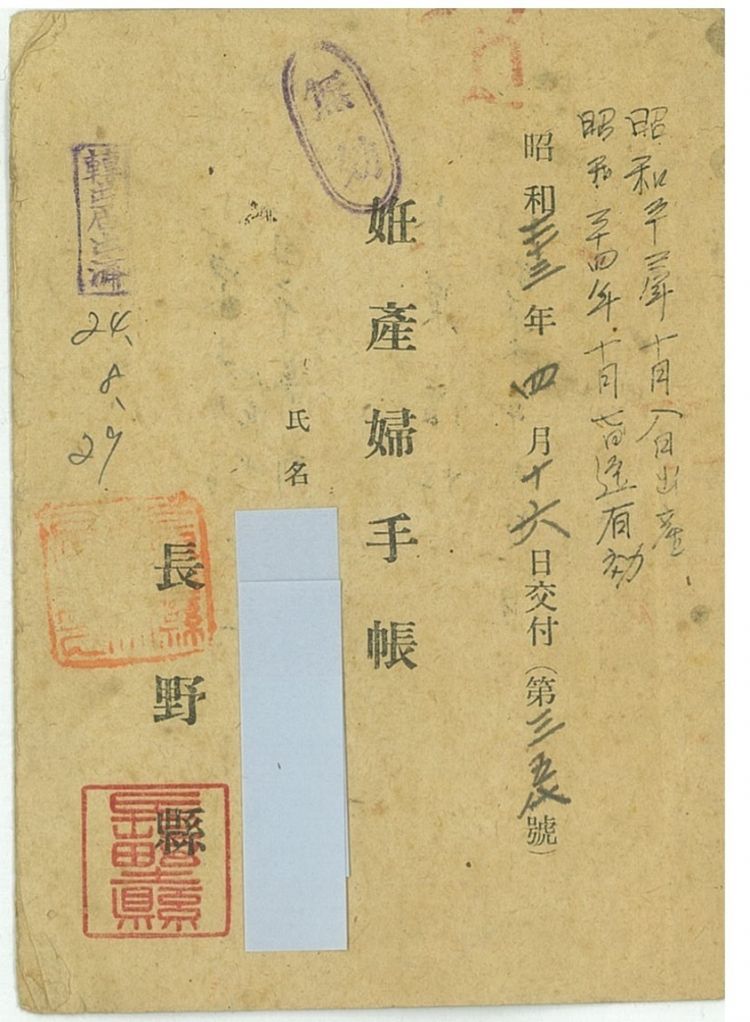 昭和二十三年十月八日出産
昭和二十四年十月七日迄有効
昭和二十三年四月十六日交付（第三五号號）
姙產婦手帳
氏名
長野縣
無効
轉出届出済
24.8.27
長野縣